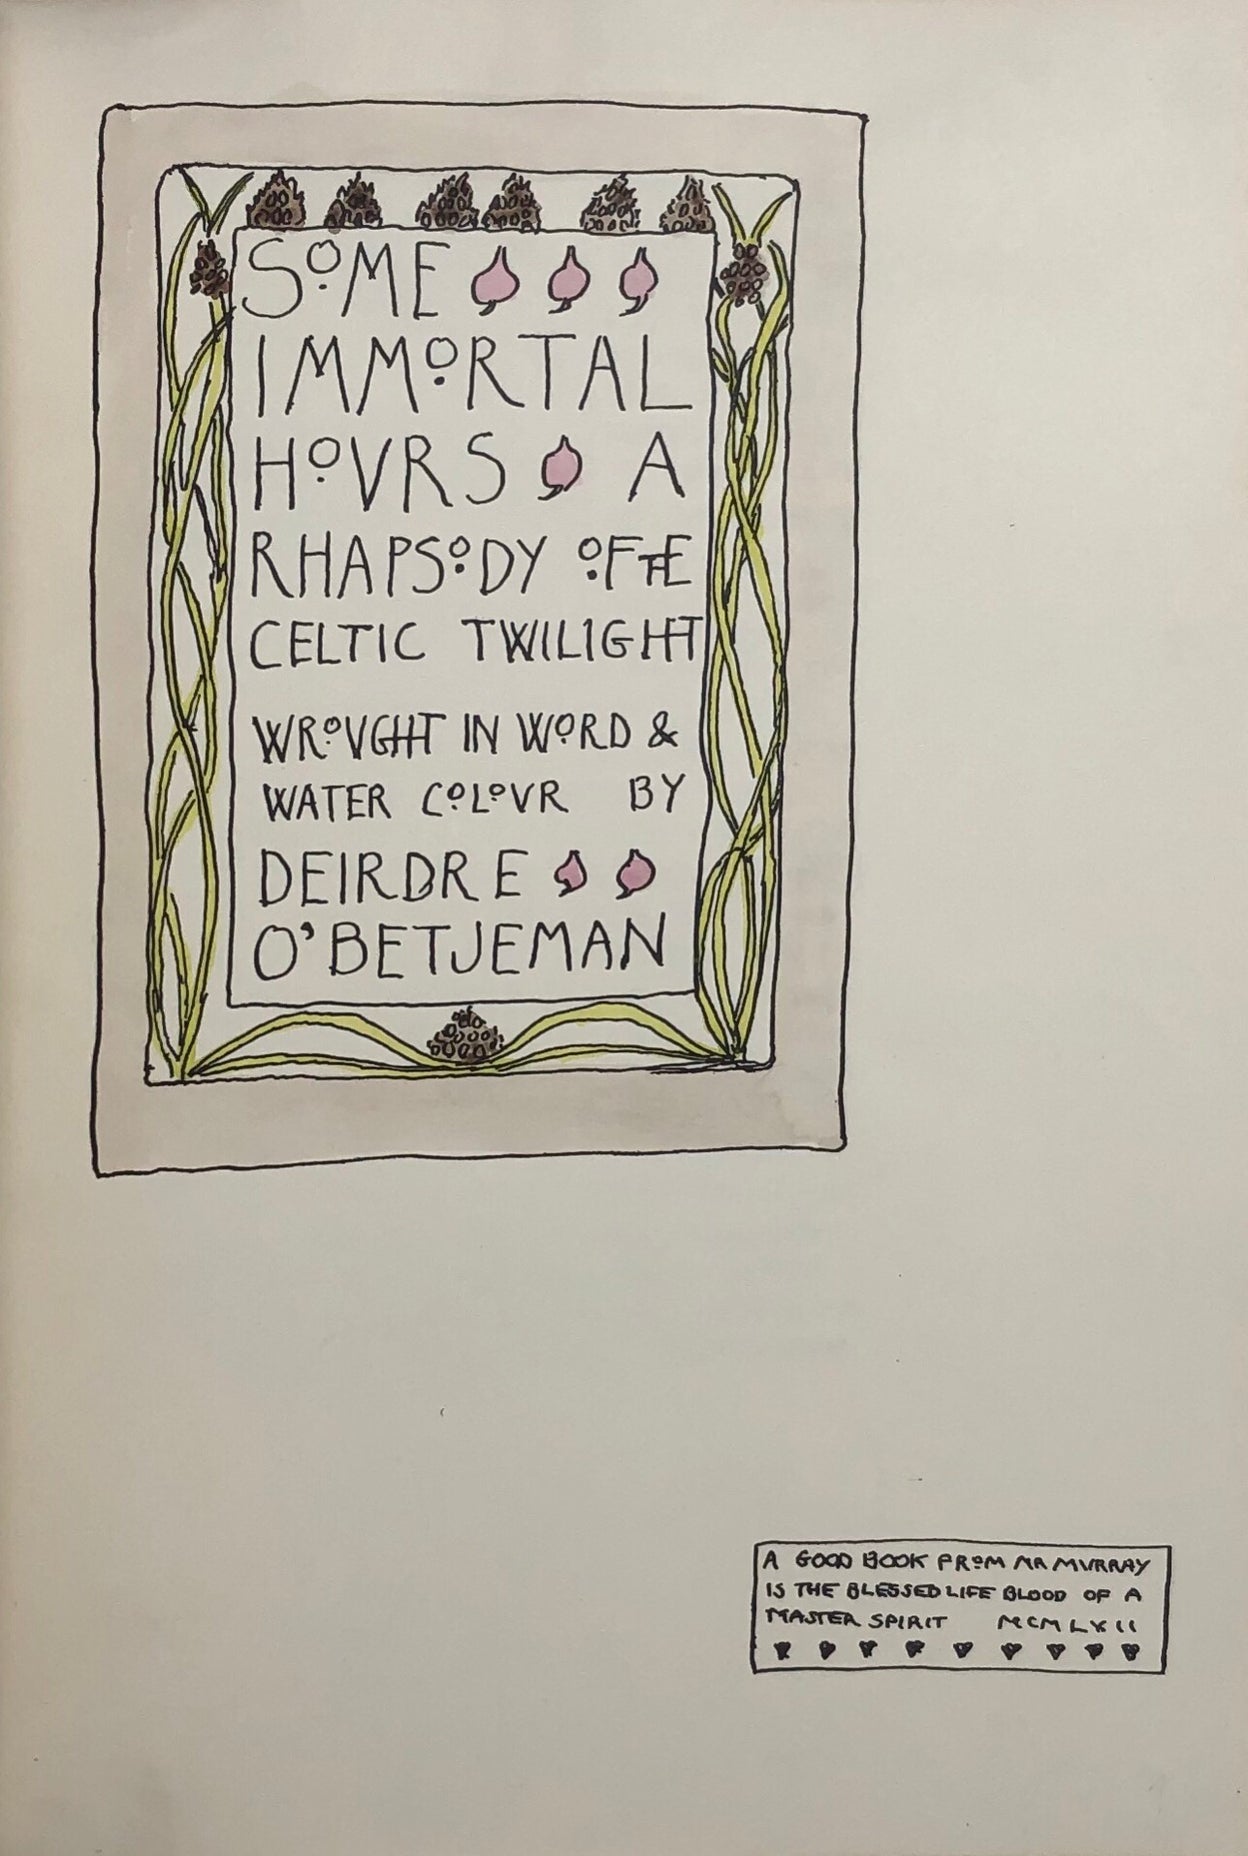 SOME
IMMORTAL
HOVRS A
RHAPSODY OF THE
CELTIC TWILIGHT
WROVGHT IN WORD &
WATER COLOVR BY
DEIRDRE
O'BETJEMAN
A GOOD BOOK FROM MR MVRRAY
IS THE BLESSED LIFE BLOOD OF A
MASTER SPIRIT MCMLXII